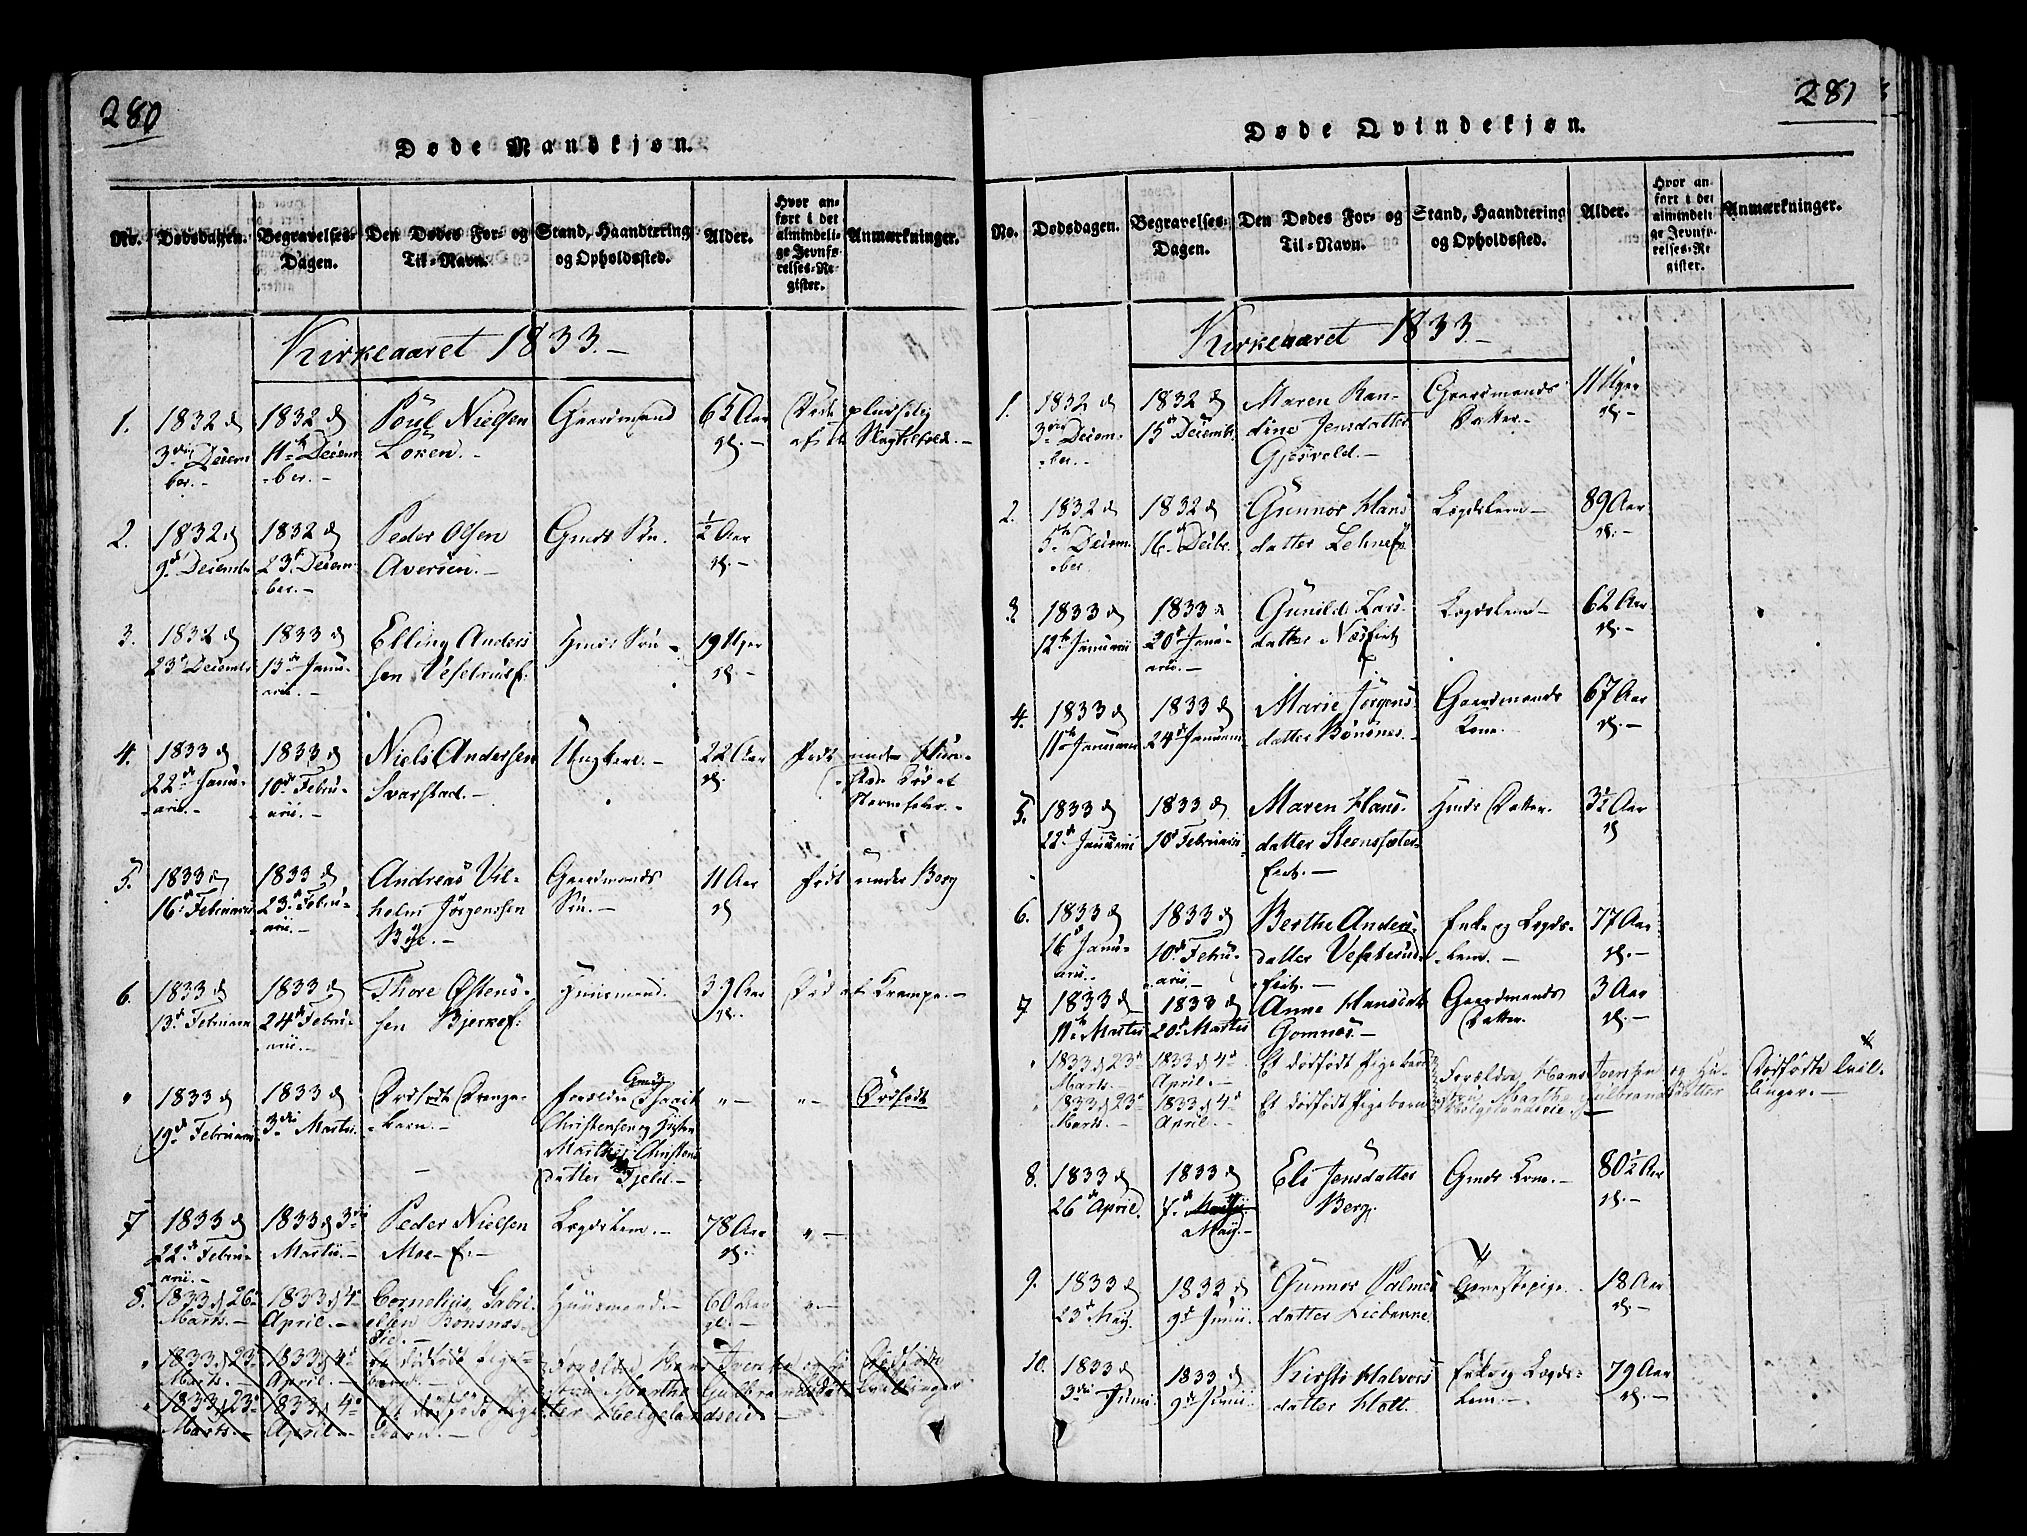 280
Døde Mandkjøn.
No.
Dødsdagen.
Begravelses-
Dagen.
Den Dødes For- og
Til-Navn.
Stand, Haandtering
og Opholdssted.
Alder.
Hvor an-
ført i det
almindeli-
ge Jevnfø-
relses-Re-
gister.
Anmærkninger.
Kirkeaaret 1833.-
1.
1832 d
3die Decem-
ber.-
1832 d
11te Decem
-ber.-
Poul Nielsen
Loken.-
Gaardmand
65 Aar
Døde pludselig
af et Slagtilfeld.-
2.
1832 d
9de Decembr
1832 d
23de Decem-
ber.-
Peder Olsen
Aversien.-
Gmds Søn.
½ Aar
3.
1832 d
23de Decembr
1833 d
13de Janu-
arii.-
Elling Anders
sen Veselrus f:
Hmds Søn
19 Uger
4.
1833 d
22de Janu-
arii.-
1833 d
10de Febru-
arii.-
Niels Andersen
Svarstad.-
Ungkarl.-
22 Aar
Født under
Død af
Nervefeber.-
5.
1833 d
16de Februarii
1833 d
23de Febru-
arii.-
Andreas Vil-
helm Jørgenssen
Bÿe.-
Gaardmands
Søn.-
11 Aar
Født under Berg
6.
1833 d
13de Februarii
1833 d
24de Febru-
arii.-
Thore Østens-
sen Bjerkef:
Huusmand.
39 Aar
Død af Krampe.-
"
1833 d
19de Februarii
1833 d
3die Martii.
Dødfødt Drenge-
-barn.-
Forældre Gmd
Christensen og Hustru
Marthe Christens
datter Fjeld.-
"-
"-
Dødfødt
7
1833 d
22de Febru-
arii.-
1833 d 3die
Martii.-
Peder Nielsen
Moe-f:-
Lægdslem.-
78 Aar
"-
8.
1833 d 26de
Marts.-
1833 d 4de
April.-
Cornelius Gabri-
elsen Bonsnæs-
Eie.-
Huusmand.-
60 Aar
"-
"
1833 d 23de
Marts.-
1833 d 4de
April.-
Et dødfødt Pige-
barn.-
Forældre Hans Iversen og Hu-
stru Marthe Gulbrandsdat-
Dødfødte
Tvillinger
"
1833 d 23de
Marts.-
1833 d 4de
April.-
Et dødfødt Pige
Barn.-
ter Helgelandseie.-
281
Døde Qvindekjøn.
No.
Dødsdagen.
Begravelses-
Dagen.
Den Dødes For- og
Til-Navn.
Stand, Haandtering
og Opholdssted.
Alder.
Hvor an-
ført i det
almindeli-
ge Jevnfø-
relses-Re-
gister.
Anmærkninger.
Kirkeaaret 1833.-
1.
1832 d
3die Decem-
-ber.-
1832 d
15de Decembr.
Maren Ran-
dine Jensdatter
Gjesvold.-
Gaardmands
Datter.-
11 Uger
2.
1832 d
5te Decem-
-ber.
1832 d
16de Decbr.
Gunnor Hans
datter Lehnef:
Lægdslem-
89 Aar
3
1833 d
12te Januarii
1833 d
20de Janu-
arii.-
Gunild Lars-
datter Næs Eie
Lægdslem-
62 Aar
4.
1833 d
11te Januarii
1833 d
24de Januarii
Marie Jörgens-
datter Bonsnes.-
Gaardmands
Kone.-
67 Aar
5.
1833 d
22de Januarii
1833 d
10de Februarii
Maren Hans-
datter Steensæter-
Eie.-
Hmds Datter.
3½ Aar
6.
1833 d
16de Janu-
arii.-
1833 d
10de Febru-
arii.-
Berthe Anders-
datter Vesterud-
Eie.-
Enke og Lægds-
-lem.-
77 Aar
7
1833 d
11te Martii
1833 d
20de Martii
Anne Hansdat
Gomnes.-
Gaardmands
Datter.
3 Aar
"
1833 d 23de
Marts.-
1833 d 4de
April.-
Et dødfødt Pigebarn
Forældre Hans Iversen og Hu-
stru Marthe Gulbrandsdatter
Helgelandseie.-
Dødfødte Tvil-
linger.-
"
1833 d 23de
Marts.-
1833 d 4de
April.-
Et dødfødt Pigebarn
8.
1833 d
26de April.
1833 d
7de Martii
May.-
Eli Jensdatter
Berg.
Gmds Kone.-
80½ Aar
9.
1833 d
23de May.
1833 d
9de Junii
Gunnor Palmes
datter Liebanne.
Tjenestepige.
18 Aar
10.
1833 d
3die Junii
1833 d
9de Junii
Kirsti Halvors
datter Holt
Enke og Lægds-
lem.-
79 Aar